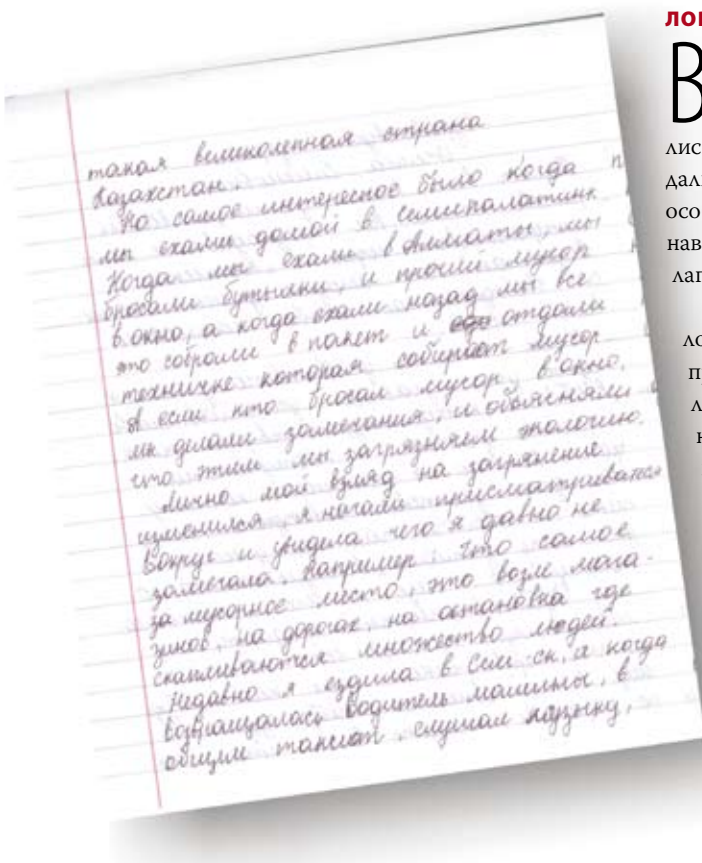 такая великолепная страна
Казахстан.
Но самое интересное было когда
мы ехали домой в Семипалатинк
Когда мы ехали в Алматы, мы
бросали бутылки, и прочий мусор
в окно, а когда ехали назад мы все
это собрали в пакет и отдали
техничке которая собирает мусор
А если кто бросал мусор в окно,
мы делали замечания, и объясняли
что этим мы загрязняем экологию.
Лично мой взгляд на загрянение
изменился, я начала присматриваться
вокруг и увидела чего я давно не
замечала. Например что самое
за мусорное место, это возле мага-
зинов, на дорогах, на остановка где
скапливаются множество людей.
Недавно я ездила в Сем-ск, и когда
возвращалась водитель машины, в
общем таксист, слушал музыку,
В
лис
дал
осо
нав
лаг
ло